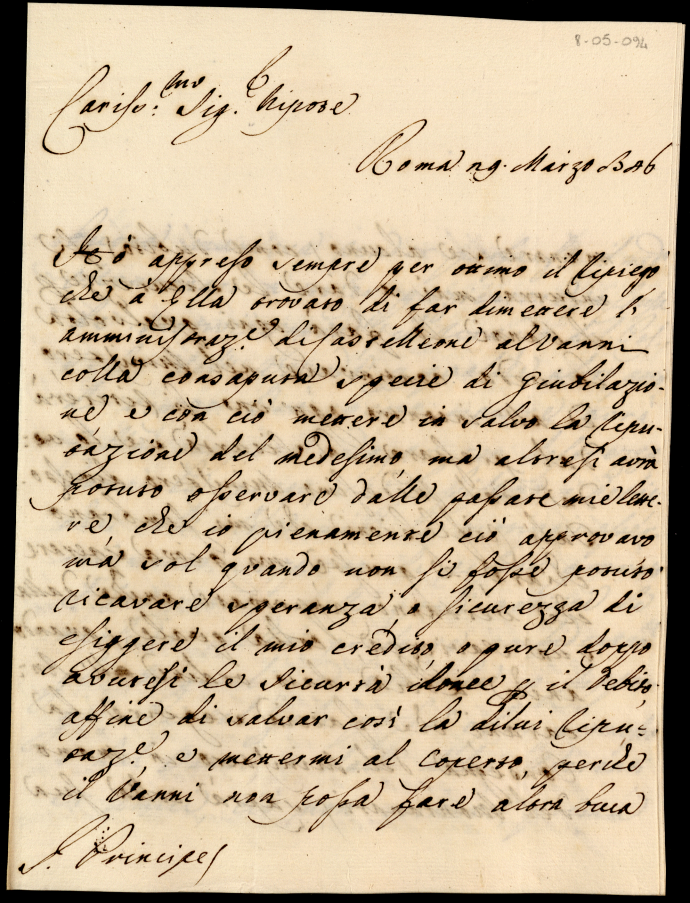 8-05-094
Cariss:mo Sig.r Nipote
Roma 29. Marzo
Hò appreso sempre per ottimo il ripiego
che a Ella trovato di far dimettere l'
amministraz.e di Castelleone al Vanni
colla consaputa specie di Giubilazio-
ne e con ciò mettere in salvo la repu-
tazione del medesimo, ma altresì avrà
potuto osservare dalle passate mie lette-
re che io pienamente ciò approvavo
mà sol quando non si fosse potuto
ricavare speranza, o sicurezza di
esiggere il mio credito, o pure doppo
avutesi le sicurtà idonee p il debito,
affine di salvar così la di lui repu-
taz.e e mettermi al coperto, perche
il Vanni non possa fare altra buca
S. Principe